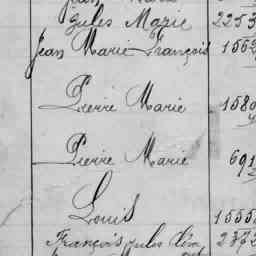 Jules Marie 2253
Jean Marie François 156
Pierre Marie 1580
Pierre Marie 691
Louis 1555
François Jules 2372